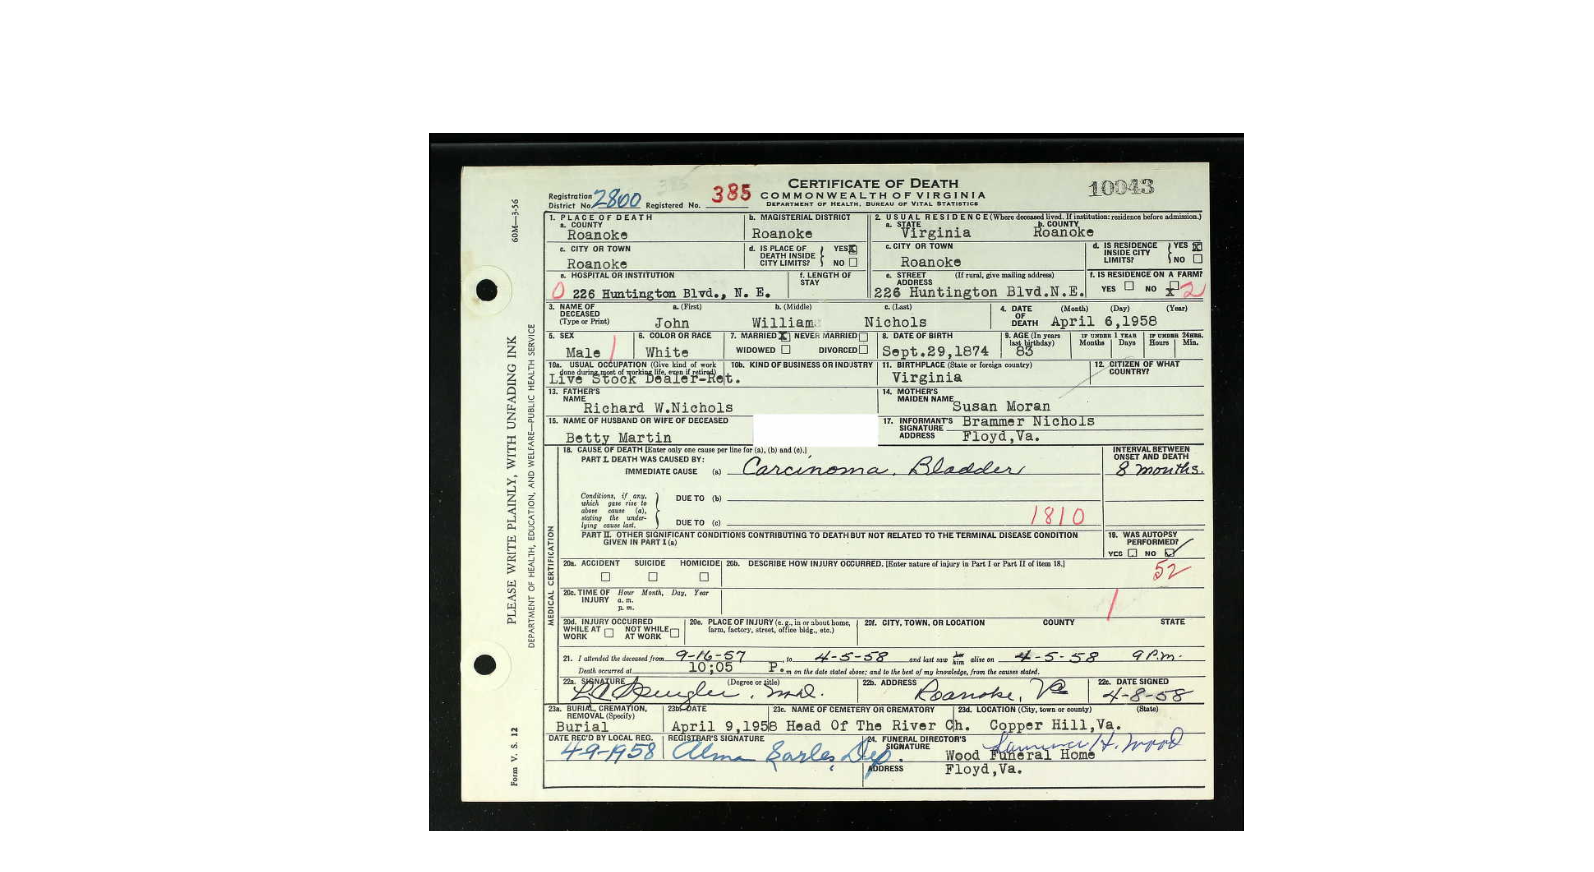 CERTIFICATE OF DEATH
COMMONWEALTH OF VIRGINIA
DEPARTMENT OF HEALTH, BUREAU OF VITAL STATISTICS
10043
Registration District No. 2800 Registered No. 385
1. PLACE OF DEATH
a. COUNTY Roanoke
b. MAGISTERIAL DISTRICT Roanoke
2. USUAL RESIDENCE (Where deceased lived. If institution: residence before admission.)
a. STATE Virginia b. COUNTY Roanoke
c. CITY OR TOWN Roanoke
d. IS PLACE OF DEATH INSIDE CITY LIMITS? YES X NO
c. CITY OR TOWN Roanoke
d. IS RESIDENCE INSIDE CITY LIMITS? YES X NO
e. HOSPITAL OR INSTITUTION 0 226 Huntington Blvd., N. E.
f. LENGTH OF STAY
e. STREET ADDRESS (If rural, give mailing address) 226 Huntington Blvd.N.E.
f. IS RESIDENCE ON A FARM? YES NO X 2
3. NAME OF DECEASED (Type or Print) a. (First) John b. (Middle) William c. (Last) Nichols
4. DATE OF DEATH (Month) (Day) (Year) April 6,1958
5. SEX Male 1
6. COLOR OR RACE White
7. MARRIED X NEVER MARRIED WIDOWED DIVORCED
8. DATE OF BIRTH Sept.29,1874
9. AGE (In years last birthday) 83
IF UNDER 1 YEAR Months Days
IF UNDER 24 HRS. Hours Min.
10a. USUAL OCCUPATION (Give kind of work done during most of working life, even if retired) Live Stock Dealer-Ret.
10b. KIND OF BUSINESS OR INDUSTRY
11. BIRTHPLACE (State or foreign country) Virginia
12. CITIZEN OF WHAT COUNTRY?
13. FATHER'S NAME Richard W.Nichols
14. MOTHER'S MAIDEN NAME Susan Moran
15. NAME OF HUSBAND OR WIFE OF DECEASED Betty Martin
17. INFORMANT'S SIGNATURE Brammer Nichols
ADDRESS Floyd,Va.
18. CAUSE OF DEATH [Enter only one cause per line for (a), (b) and (c).]
PART I. DEATH WAS CAUSED BY:
IMMEDIATE CAUSE (a) Carcinoma, Bladder
INTERVAL BETWEEN ONSET AND DEATH 8 months.
Conditions, if any, which gave rise to above cause (a), stating the underlying cause last.
DUE TO (b)
DUE TO (c) 1810
PART II. OTHER SIGNIFICANT CONDITIONS CONTRIBUTING TO DEATH BUT NOT RELATED TO THE TERMINAL DISEASE CONDITION GIVEN IN PART I (a)
19. WAS AUTOPSY PERFORMED? YES NO
52
20a. ACCIDENT SUICIDE HOMICIDE
20b. DESCRIBE HOW INJURY OCCURRED. [Enter nature of injury in Part I or Part II of item 18.]
20c. TIME OF INJURY Hour Month, Day, Year a. m. p. m.
20d. INJURY OCCURRED WHILE AT WORK NOT WHILE AT WORK
20e. PLACE OF INJURY (e. g., in or about home, farm, factory, street, office bldg., etc.)
20f. CITY, TOWN, OR LOCATION COUNTY STATE
21. I attended the deceased from 9-16-57 to 4-5-58 and last saw him alive on 4-5-58 9 P.m.
Death occurred at 10;05 P. m on the date stated above; and to the best of my knowledge, from the causes stated.
22a. SIGNATURE (Degree or title) M.D.
22b. ADDRESS Roanoke, Va
22c. DATE SIGNED 4-8-58
23a. BURIAL, CREMATION, REMOVAL (Specify) Burial
23b. DATE April 9,1958
23c. NAME OF CEMETERY OR CREMATORY Head Of The River Ch.
23d. LOCATION (City, town or county) (State) Copper Hill,Va.
DATE REC'D BY LOCAL REG. 4-9-1958
REGISTRAR'S SIGNATURE Alma Earles Dep.
24. FUNERAL DIRECTOR'S SIGNATURE H. Wood
Wood Funeral Home
ADDRESS Floyd,Va.
MEDICAL CERTIFICATION
DEPARTMENT OF HEALTH, EDUCATION, AND WELFARE—PUBLIC HEALTH SERVICE
PLEASE WRITE PLAINLY, WITH UNFADING INK
60M—3-56
Form V. S. 12